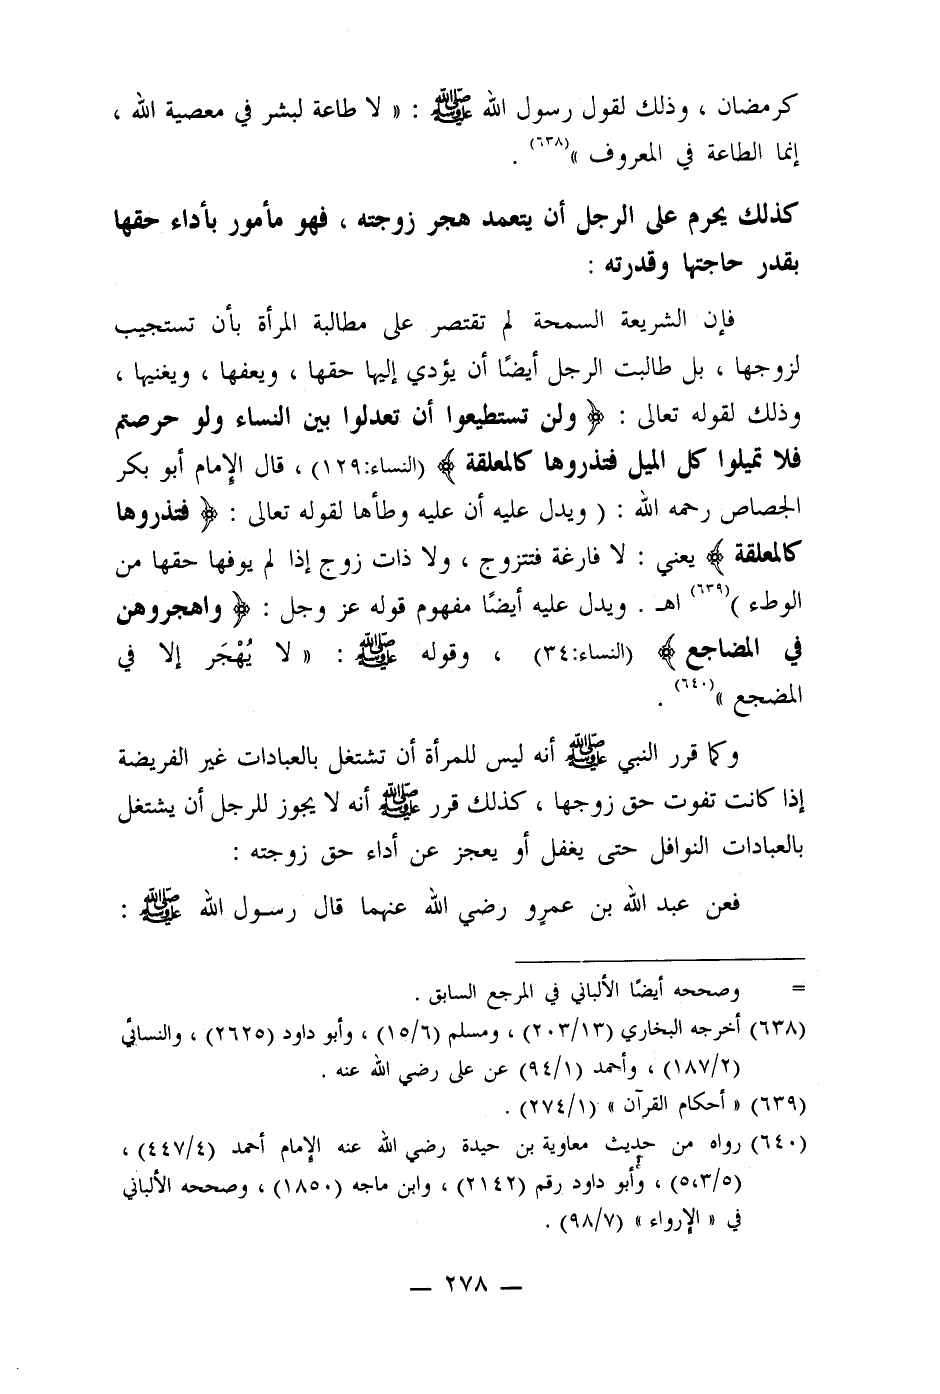 كرمضان ، وذلك لقول رسول الله ﷺ : « لا طاعة لبشر في معصية الله ،
إنما الطاعة في المعروف »(٦٣٨) .
كذلك يحرم على الرجل أن يتعمد هجر زوجته ، فهو مأمور بأداء حقها
بقدر حاجتها وقدرته :
فإن الشريعة السمحة لم تقتصر على مطالبة المرأة بأن تستجيب
لزوجها ، بل طالبت الرجل أيضًا أن يؤدي إليها حقها ، ويعفها ، ويغنيها ،
وذلك لقوله تعالى : ﴿ ولن تستطيعوا أن تعدلوا بين النساء ولو حرصتم
فلا تميلوا كل الميل فتذروها كالمعلقة ﴾ (النساء:١٢٩) ، قال الإمام أبو بكر
الجصاص رحمه الله : ( ويدل عليه أن عليه وطأها لقوله تعالى : ﴿ فتذروها
كالمعلقة ﴾ يعني : لا فارغة فتتزوج ، ولا ذات زوج إذا لم يوفها حقها من
الوطء )(٦٣٩) اهـ . ويدل عليه أيضًا مفهوم قوله عز وجل : ﴿ واهجروهن
في المضاجع ﴾ (النساء:٣٤) ، وقوله ﷺ : « لا يُهْجَر إلا في
المضجع »(٦٤٠) .
وكما قرر النبي ﷺ أنه ليس للمرأة أن تشتغل بالعبادات غير الفريضة
إذا كانت تفوت حق زوجها ، كذلك قرر ﷺ أنه لا يجوز للرجل أن يشتغل
بالعبادات النوافل حتى يغفل أو يعجز عن أداء حق زوجته :
فعن عبد الله بن عمرٍو رضي الله عنهما قال رسول الله ﷺ :
= وصححه أيضًا الألباني في المرجع السابق .
(٦٣٨) أخرجه البخاري (٢٠٣/١٣) ، ومسلم (١٥/٦) ، وأبو داود (٢٦٢٥) ، والنسائي
(١٨٧/٢) ، وأحمد (٩٤/١) عن على رضي الله عنه .
(٦٣٩) « أحكام القرآن » (٢٧٤/١) .
(٦٤٠) رواه من حديث معاوية بن حيدة رضي الله عنه الإمام أحمد (٤٤٧/٤) ،
(٥،٣/٥) ، وأبو داود رقم (٢١٤٢) ، وابن ماجه (١٨٥٠) ، وصححه الألباني
في « الإرواء » (٩٨/٧) .
— ٢٧٨ —